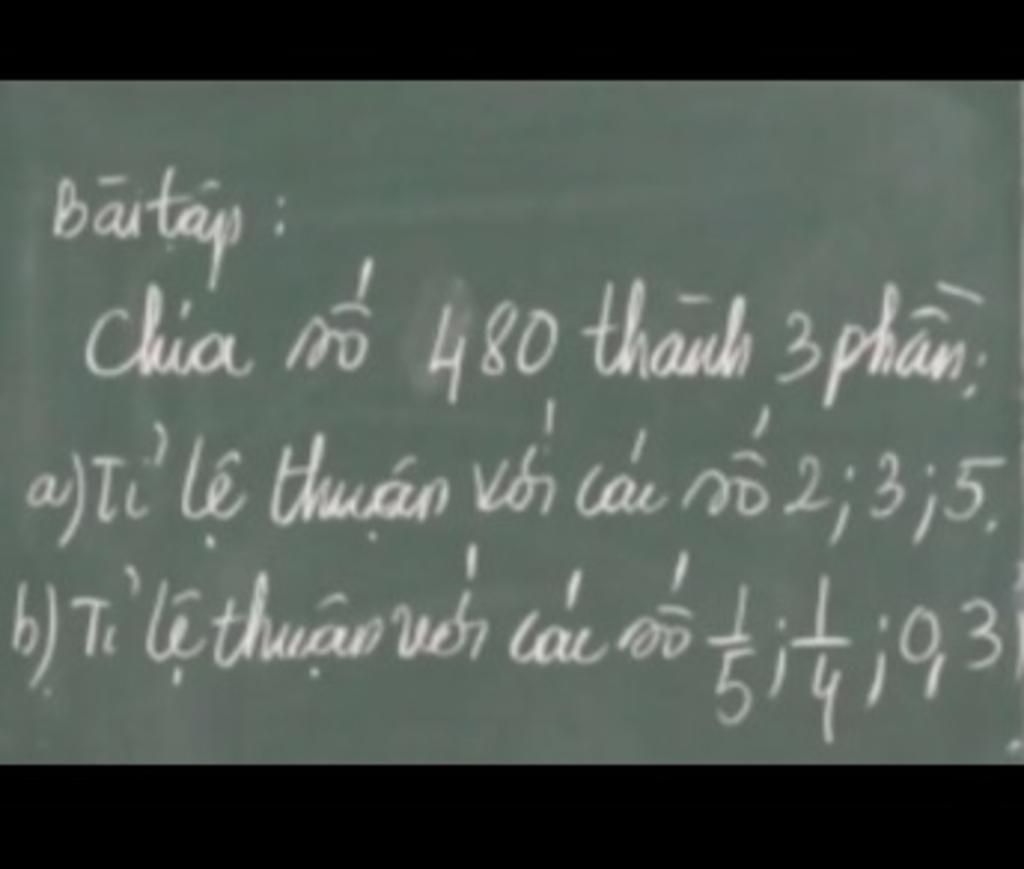 Bài tập :
Chia số 480 thành 3 phần:
a) Tỉ lệ thuận với các số 2; 3; 5.
b) Tỉ lệ thuận với các số 1/5; 1/4; 0,3